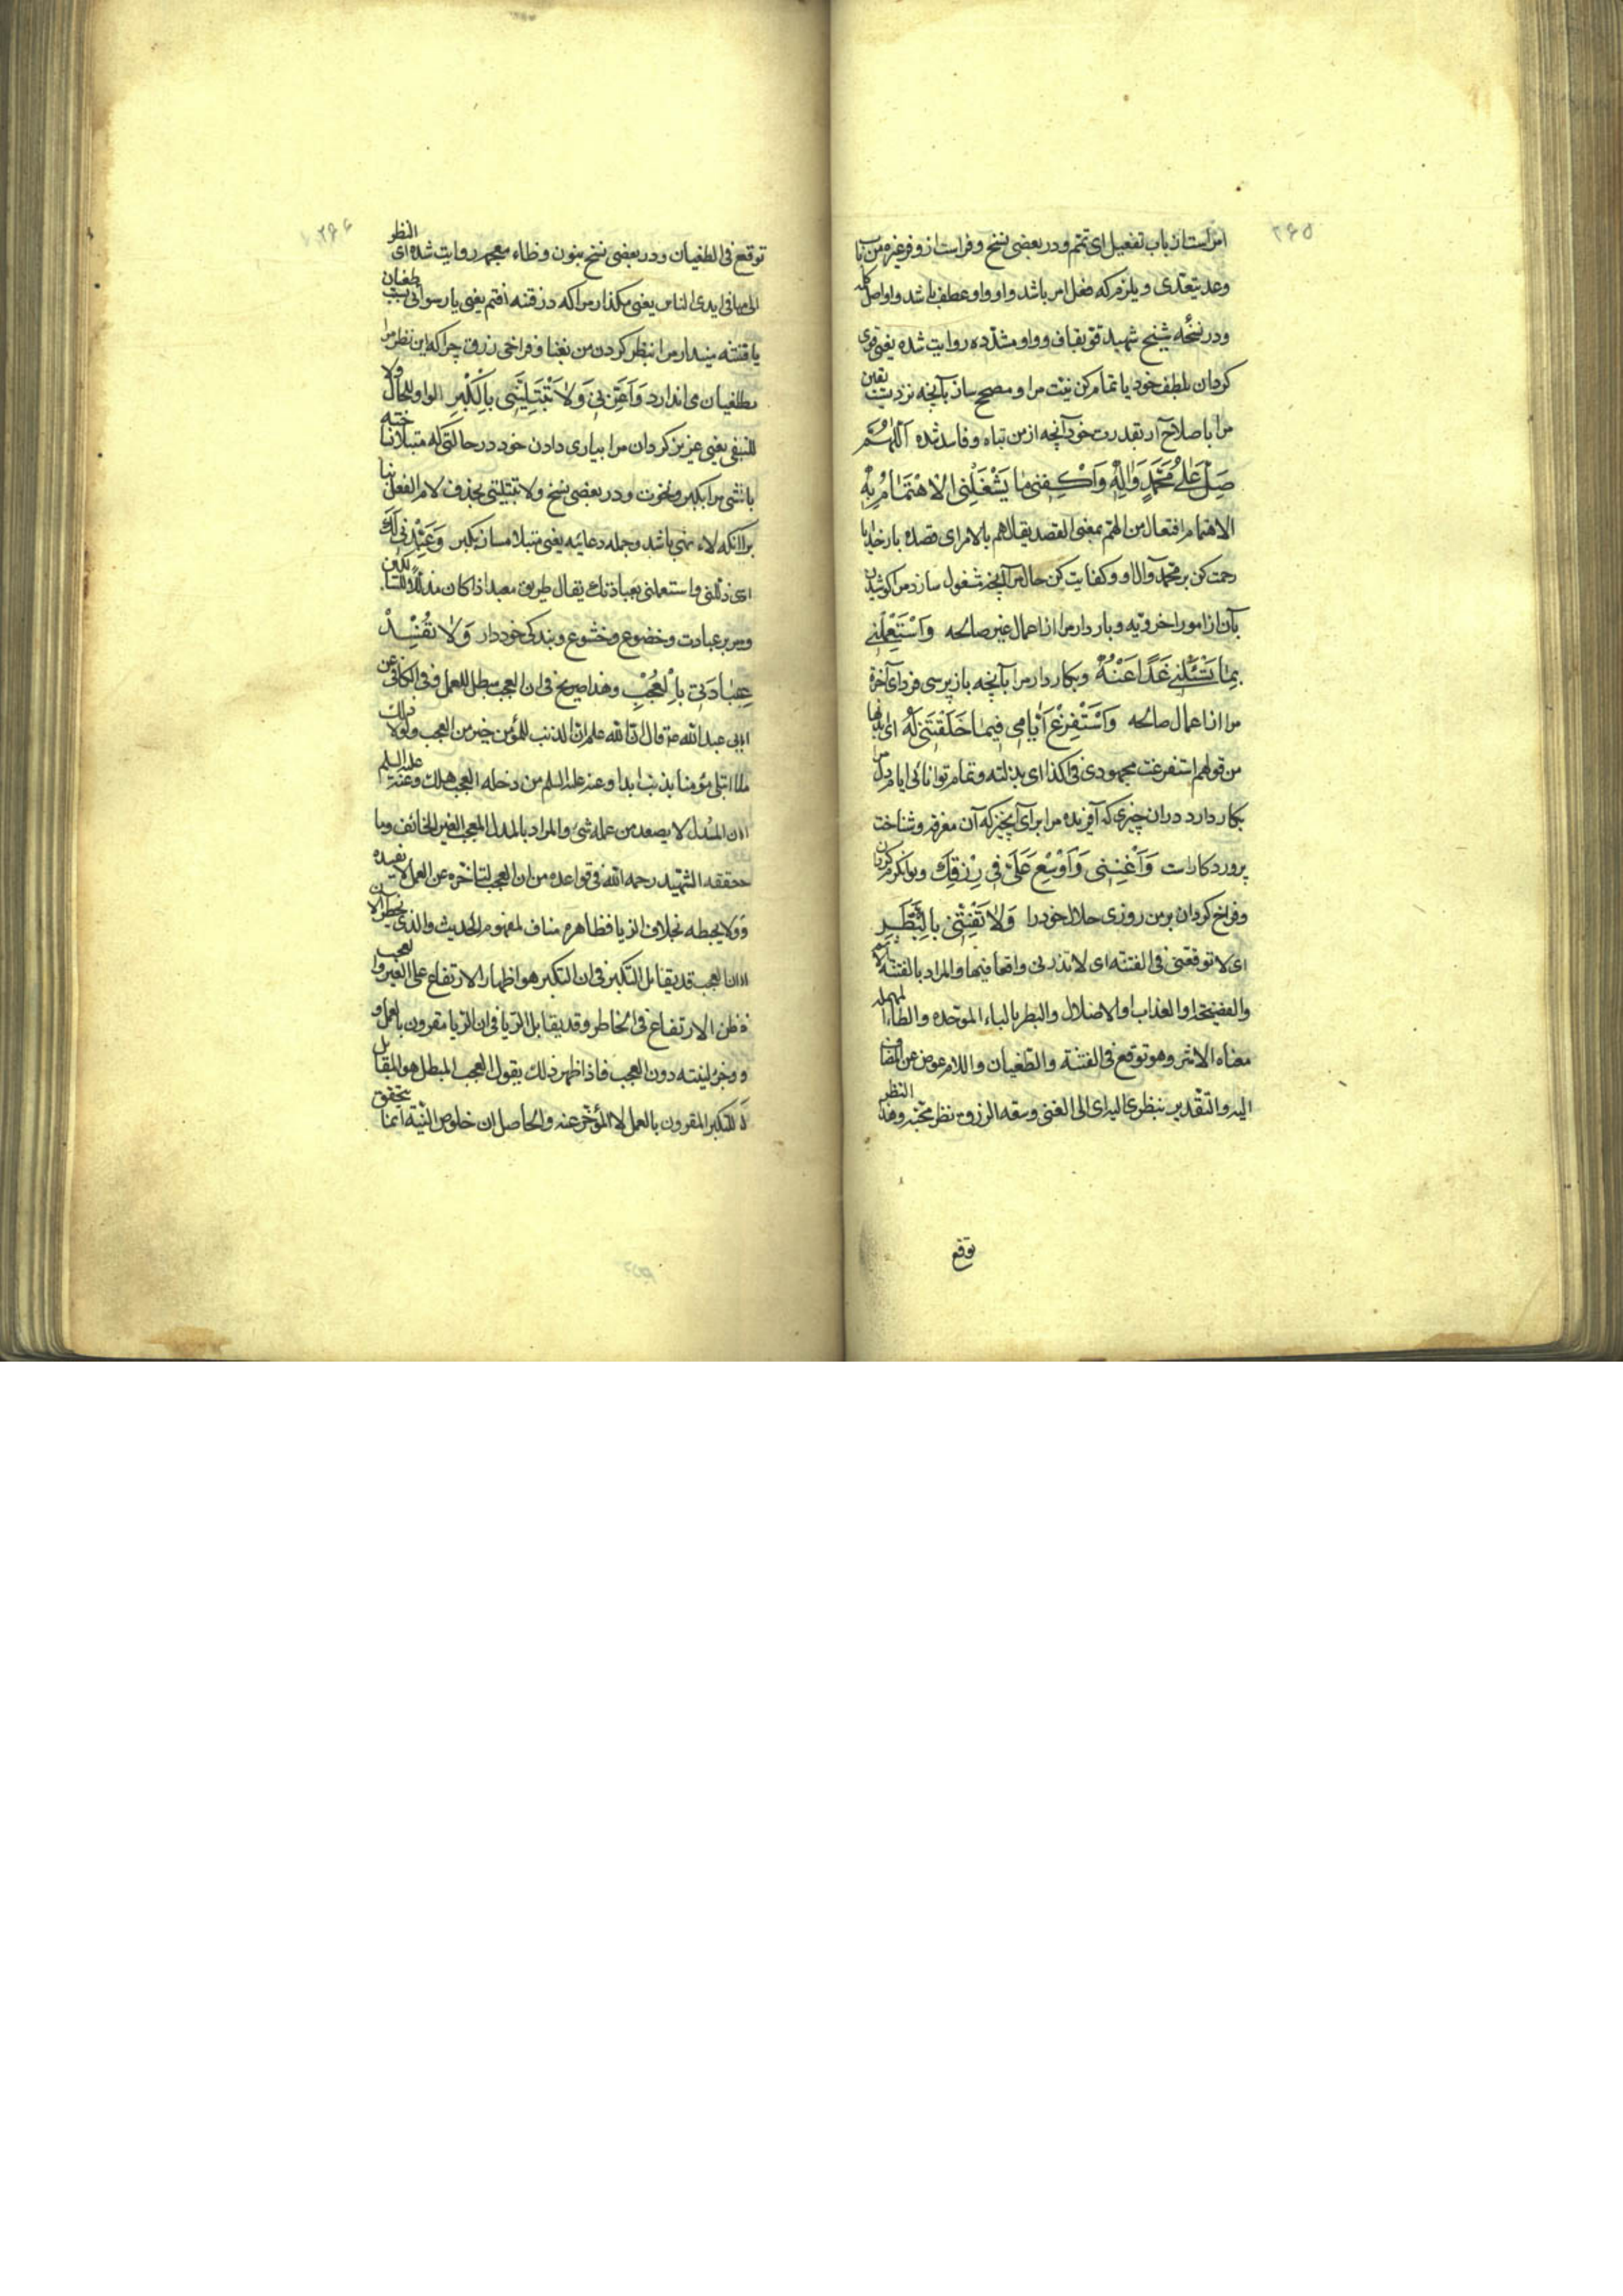 ۲۶۵
امر است از باب تفعیل ای تمّم و در بعضی نسخ وفر است از وفر غیره من باب
وعد یتعدّی و یلزم که فعل امر باشد و او واو عطف باشد و او اصل کلمه
و در نسخه شیخ شهید قوّ بقاف و واو مشدّده روایت شده یعنی قوی
کردان بلطف خود یا تمام کن نیّت مرا و مصحح ساز بآنچه نزد تست یقین
مرا باصلاح آر بقدرت خود آنچه از من تباه و فاسد شده اَللّٰهُمَّ
صَلِّ عَلٰی مُحَمَّدٍ وَاٰلِهِ وَاَکْفِنِی مَا یَشْغَلُنِی الاِهْتِمَامُ بِهِ
الاهتمام افتعال من الهمّ بمعنی القصد یقال اهم بالامر ای قصده بار خدایا
رحمت کن بر محمد و آل او و کفایت کن حال مرا آنچه مشغول سازد مرا کوشیدن
بآن از امور اخرویه و باز دار مرا از اعمال غیر صالحه وَاسْتَعْمِلْنِی
بِمَا تَسْئَلُنِی غَدًا عَنْهُ و بکار دار مرا بآنچه باز پرسی فردای آخرة
مرا از اعمال صالحه وَاسْتَفْرِغْ اَیَّامِی فِیمَا خَلَقْتَنِی لَهُ ای ابذلها
من قولهم استفرغت مجهودی فی کذا ای بذلته و تمام توانائی ایام مرا
بکار دارد در ان چیزی که آفریده مرا برای آنچیز که آن معرفة و شناخت
پروردکار است وَاَغْنِنِی وَاَوْسِعْ عَلَیَّ فِی رِزْقِکَ و توانکرم کردان
و فراخ کردان بر من روزی حلال خود را وَلاٰ تَفْتِنِّی بِالْبَطَرِ
ای لا توقعنی فی الفتنه ای لا تذرنی واقعا فیها والمراد بالفتنه الاثم
والفضیحة او العذاب او الاضلال والبطر بالباء الموحده والطاء المهمله
معناه الاشر وهو توقع فی الفتنة والطغیان واللام عوض عن المضاف
الیه والتقدیر بنظری الیه ای الی الغنی وسعه الرزق نظر محبّه وهذا النظر
توقع
۲۶۶
توقع فی الطغیان و در بعضی نسخ بنون وظاء معجمه روایت شده ای النظر
الی ما فی ایدی الناس یعنی مکذار مرا که در فتنه افتم یعنی یا رسوائی بسبب طغیان
یا فتنه مینداز مرا بنظر کردن من بغنا و فراخی رزق چرا که این نظر مرا
بطغیان می اندازد وَاَعِزَّنِی وَلاٰ تَبْتَلِیَنِّی بِالْکِبْرِ الواو للحال ولا
للنفی یعنی عزیز کردان مرا بیاری دادن خود در حالتی که مبتلا نساخته
باشی مرا بکبر و نخوت و در بعضی نسخ ولا تبتلنی بحذف لام الفعل بنا
بر آنکه لاء نهی باشد و جمله دعائیه یعنی مبتلا مساز بکبر وَعَبِّدْنِی لَکَ
ای ذللنی واستعملنی بعبادتک یقال طریق معبد اذا کان مذللا للسالکین
و سر بر عبادت و خضوع و خشوع و بندکی خود دار وَلاٰ تُفْسِدْ
عِبَادَتِی بِالْعُجْبِ وهذا صریح فی ان العجب مبطل للعمل وفی الکافی عن
ابی عبد الله ع قال ان الله علم ان الذنب للمؤمن خیر من العجب ولولا ذلک
ما ابتلی مؤمنا بذنب ابدا وعنه علیه السلم من دخله العجب هلک وعنه علیه السلم
ان المدل لا یصعد من عمله شئ والمراد بالمدل المعجب الغیر الخائف وما
حققه الشهید رحمه الله فی قواعده من ان العجب لتاخره عن العمل لا یفسده
ولا یحبطه بخلاف الریا فظاهره مناف لمفهوم الحدیث والذی یخطر الان
ان العجب قد یقابل التکبر فی ان التکبر هو اظهار الارتفاع علی الغیر والعجب
ظن الارتفاع فی الخاطر وقد یقابل الریا فی ان الریا مقرون بالعمل و
وجزء لنیته دون العجب فاذا ظهر ذلک یقول العجب المبطل هو المقابل
للتکبر المقرون بالعمل لا المؤخر عنه والحاصل ان خلوص النیّة انما یتحقق